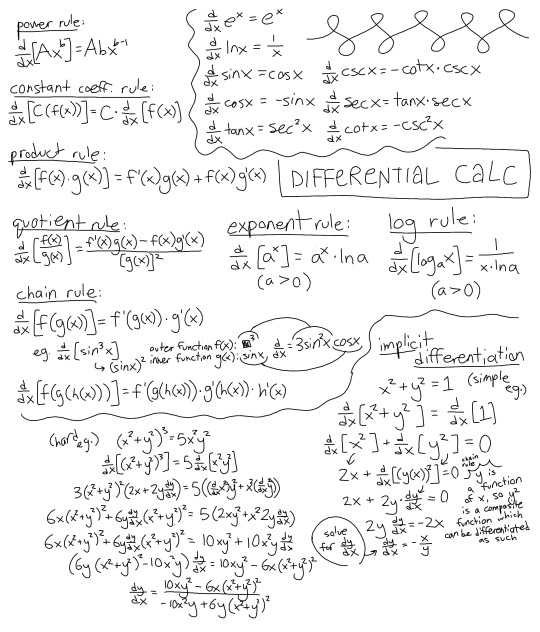 power rule:
d/dx[Ax^b] = Abx^(b-1)
constant coeff. rule:
d/dx[C(f(x))] = C · d/dx[f(x)]
product rule:
d/dx[f(x)·g(x)] = f'(x)g(x) + f(x)g'(x)
d/dx e^x = e^x
d/dx lnx = 1/x
d/dx sinx = cosx d/dx cscx = -cotx·cscx
d/dx cosx = -sinx d/dx secx = tanx·secx
d/dx tanx = sec²x d/dx cotx = -csc²x
DIFFERENTIAL CALC
quotient rule:
d/dx[f(x)/g(x)] = (f'(x)g(x) - f(x)g'(x))/[g(x)]²
exponent rule:
d/dx[a^x] = a^x · lna
(a>0)
log rule:
d/dx[log_a x] = 1/(x·lna)
(a>0)
chain rule:
d/dx[f(g(x))] = f'(g(x))·g'(x)
eg. d/dx[sin³x]
↳ (sinx)³
outer function f(x): ■³
inner function g(x): sinx
d/dx = 3sin²x cosx
d/dx[f(g(h(x)))] = f'(g(h(x)))·g'(h(x))·h'(x)
implicit
differentiation
x²+y²=1 (simple eg.)
d/dx[x²+y²] = d/dx[1]
d/dx[x²] + d/dx[y²] = 0
2x + d/dx[(y(x))²] = 0
2x + 2y·dy/dx = 0
2y dy/dx = -2x
dy/dx = -x/y
chain rule
y is
a function
of x, so y²
is a composite
function which
can be differentiated
as such
solve
for dy/dx
(hard eg.) (x²+y²)³ = 5x²y²
d/dx[(x²+y²)³] = 5 d/dx[x²y²]
3(x²+y²)²(2x+2y dy/dx) = 5((d/dx x²)y²+x²(d/dx y²))
6x(x²+y²)²+6y dy/dx(x²+y²)² = 5(2xy²+x²2y dy/dx)
6x(x²+y²)²+6y dy/dx(x²+y²)² = 10xy²+10x²y dy/dx
(6y(x²+y²)²-10x²y) dy/dx = 10xy²-6x(x²+y²)²
dy/dx = (10xy²-6x(x²+y²)²)/(-10x²y+6y(x²+y²)²)